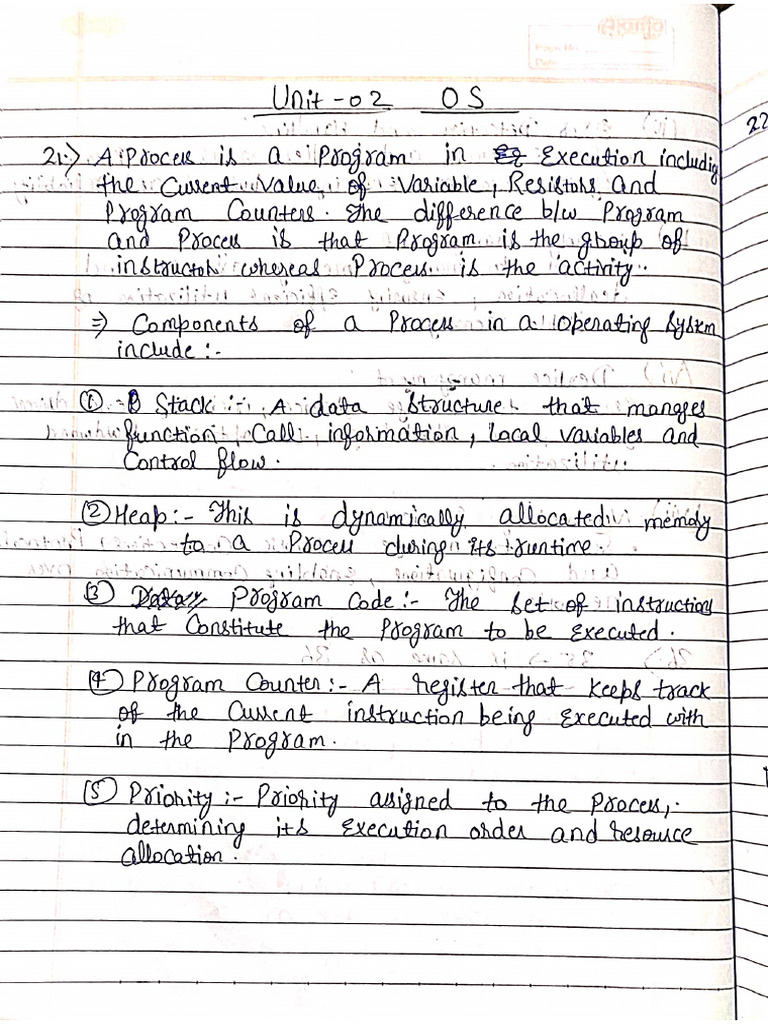 Unit-02 OS
22
21:) A Process is a Program in Execution including
the Current Value of Variable, Resistors and
Program Counters. The difference b/w Program
and Process is that Program is the group of
instructor whereas Process is the activity.
⇒ Components of a Process in a Operating System
include :-
① Stack :- A data Structure that manges
function Call information, Local variables and
Control flow.
② Heap :- This is dynamically allocated memory
to a Process during its runtime.
③ Program Code :- The Set of instruction
that Constitute the Program to be Executed.
④ Program Counter :- A register that keeps track
of the Current instruction being Executed with
in the Program.
⑤ Priority :- Priority assigned to the Process,
determining its Execution order and resource
allocation.